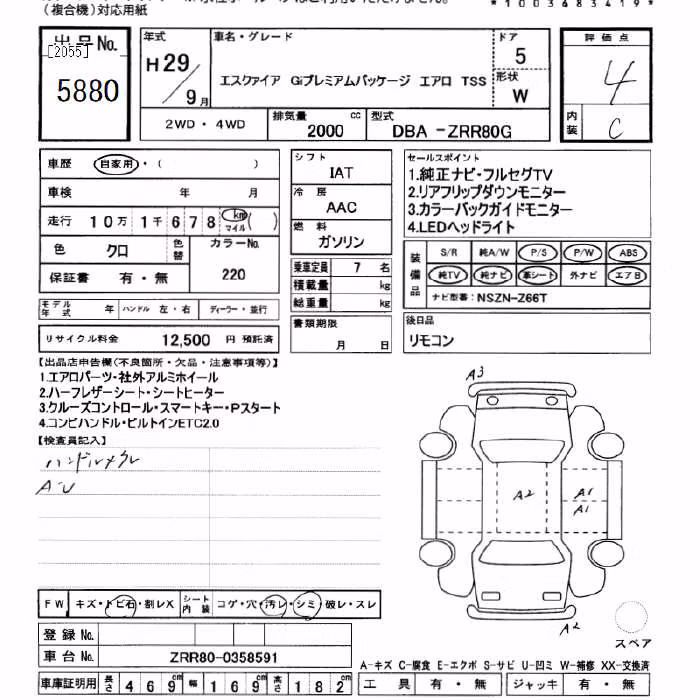 (複合機)対応用紙
*1003683419*
出品No.
[2055]
5880
年式
H29/9月
車名・グレード
エスクァイア Giプレミアムパッケージ エアロ TSS
ドア
5
形状
W
評価点
4
内装
C
2WD・4WD
排気量
2000 cc
型式
DBA -ZRR80G
車歴 自家用・( )
車検 年 月
走行 10万1千678 km マイル ( )
色 クロ 色替
カラーNo.
220
保証書 有・無
モデル年式 年 ハンドル 左・右 ディーラー・並行
リサイクル料金 12,500 円 預託済
シフト
IAT
冷房
AAC
燃料
ガソリン
乗車定員 7 名
積載量 kg
総重量 kg
書類期限
月 日
セールスポイント
1.純正ナビ・フルセグTV
2.リアフリップダウンモニター
3.カラーバックガイドモニター
4.LEDヘッドライト
装備品
S/R 純A/W P/S P/W ABS
純TV 純ナビ 革シート 外ナビ エアB
ナビ型番: NSZN-Z66T
後日品
リモコン
【出品店申告欄(不良箇所・欠品・注意事項等)】
1.エアロパーツ・社外アルミホイール
2.ハーフレザーシート・シートヒーター
3.クルーズコントロール・スマートキー・Pスタート
4.コンビハンドル・ビルトインETC2.0
【検査員記入】
ハンドルメクレ
A-U
A3
A2
A1
A1
A2
スペア
FW キズ・トビ石・割レX
シート内装 コゲ・穴・汚レ・シミ・破レ・スレ
登録No.
車台No. ZRR80-0358591
車庫証明用 長さ 469cm 幅 169cm 高さ 182cm
A-キズ C-腐食 E-エクボ S-サビ U-凹ミ W-補修 XX-交換済
工具 有・無 ジャッキ 有・無